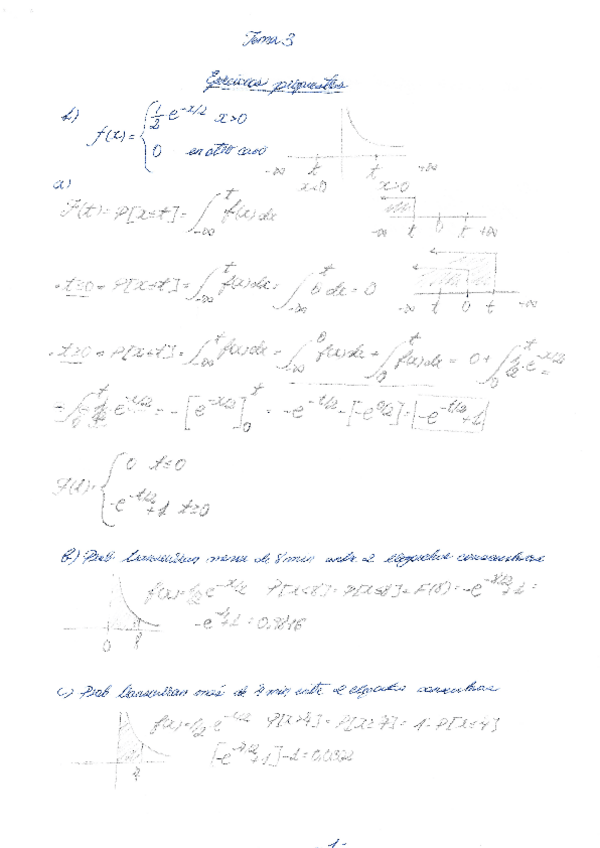 Tema 3
Ejercicios propuestos
1)
f(x) = { 1/2 e^-x/2 x>0
0 en otro caso
-∞ t t +∞
x<0 x>0
a)
F(t) = P[x≤t] = ∫_-∞^t f(x)dx
-∞ t 0 t +∞
· t≤0 = P[x≤t] = ∫_-∞^t f(x)dx = ∫_-∞^t 0 dx = 0
-∞ t 0 t -∞
· t≥0 = P[x≤t] = ∫_-∞^t f(x)dx = ∫_-∞^0 f(x)dx + ∫_0^t f(x)dx = 0 + ∫_0^t 1/2 · e^-x/2 =
= ∫_0^t 1/2 e^-x/2 = -[e^-x/2]_0^t = -e^-t/2 - [-e^0/2] = -e^-t/2 + 1
F(t) = { 0 t≤0
-e^-t/2 + 1 t≥0
b) Prob menos de 8 min entre 2 consecutivas
f(x) = 1/2 e^-x/2 P[x<8] = P[x≤8] = F(8) = -e^-8/2 + 1 =
0 8
-e^-4 + 1 = 0.9816
c) Prob más de 7 min entre 2 consecutivas
f(x) = 1/2 e^-x/2 P[x>7] = P[x≥7] = 1 - P[x≤7]
[-e^-7/2 + 1] - 1 =
7
-1-